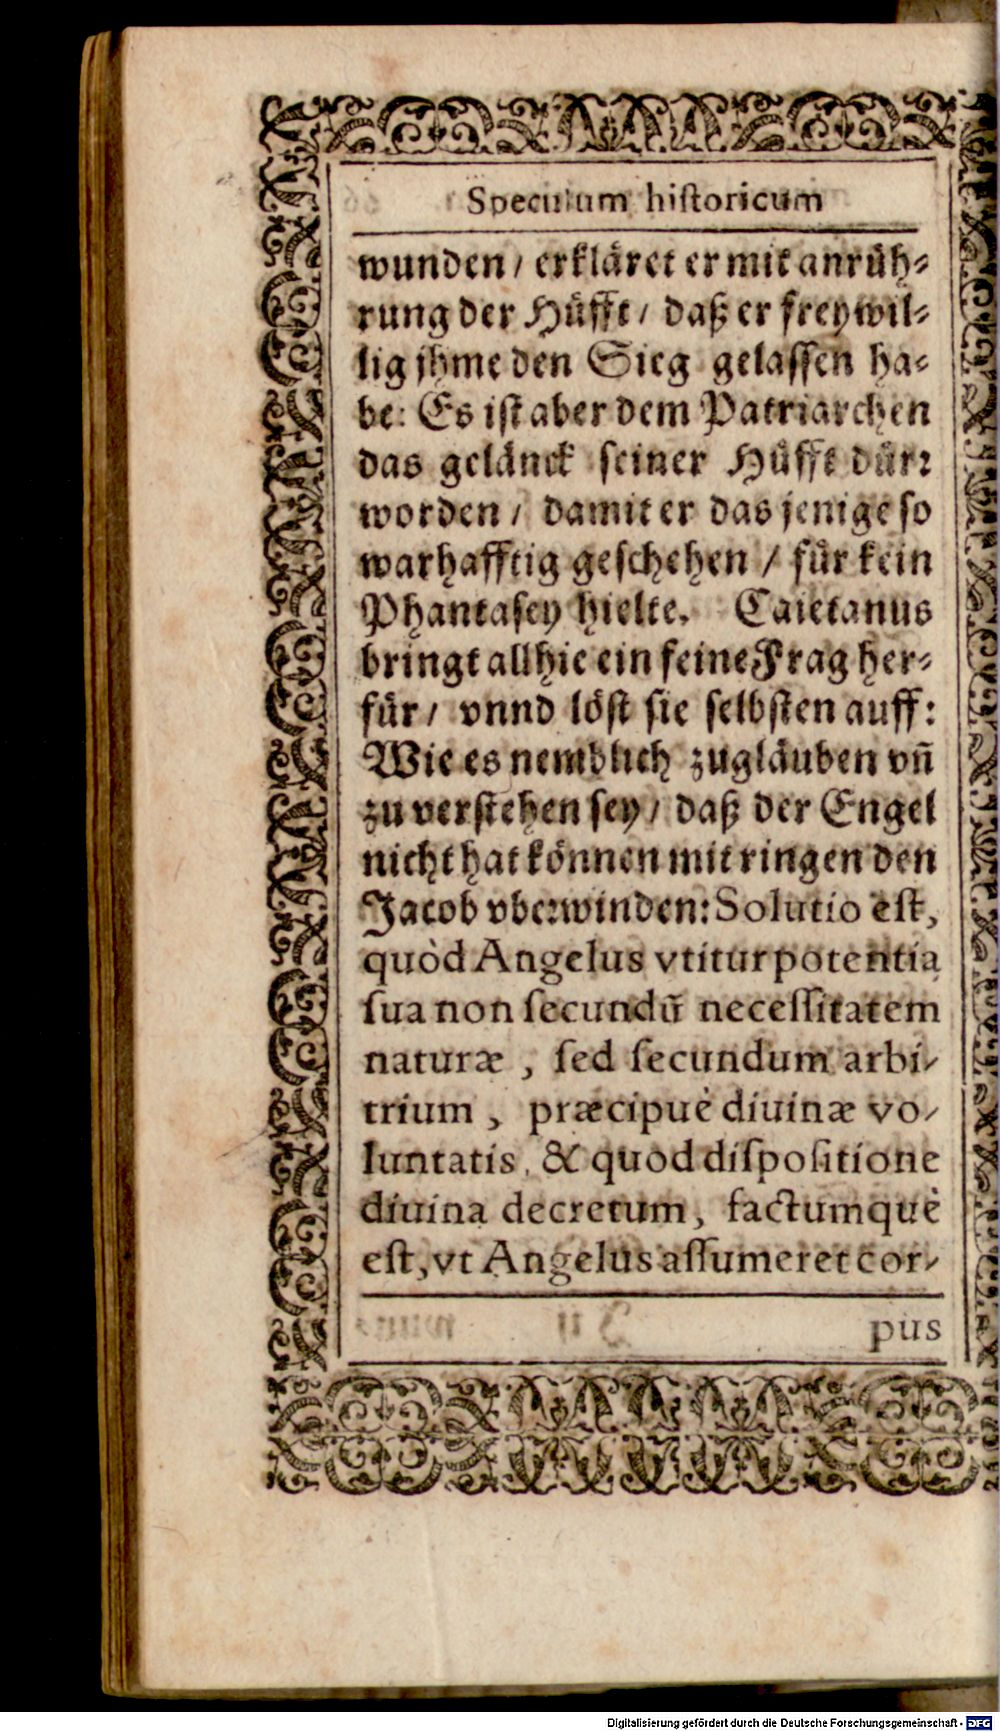 Speculum hiſtoricum
wunden / erkläret er mit anrüh⸗
rung der Hüfft / daß er freywil⸗
lig jhme den Sieg gelaſſen ha⸗
be: Es iſt aber dem Patriarchen
das gelänck ſeiner Hüfft dürꝛ
worden / damit er das jenige ſo
warhafftig geſchehen / für kein
Phantaſey hielte. Caietanus
bringt allhie ein feine Frag her⸗
für / vnnd löſt ſie ſelbſten auff:
Wie es nemblich zugläuben vñ
zu verſtehen ſey / daß der Engel
nicht hat können mit ringen den
Jacob vbeꝛwinden: Solutio eſt,
quòd Angelus vtitur potentia
ſua non ſecundũ neceſſitatem
naturæ, ſed ſecundum arbi-
trium, præcipuè diuinæ vo-
luntatis, & quod diſpoſitione
diuina decretum, factumquè
eſt, vt Angelus aſſumeret cor-
pus
Digitalisierung gefördert durch die Deutsche Forschungsgemeinschaft - DFG